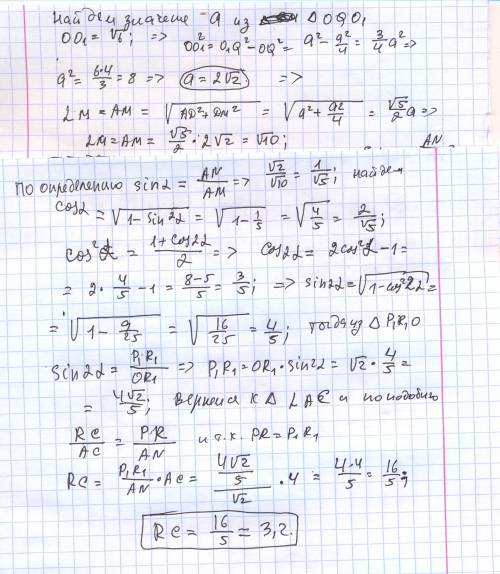 Найдем значение a из △OQO₁
OO₁ = √6; => OO₁² = O₁Q² - OQ² = a² - a²/4 = 3/4 a² =>
a² = 6·4/3 = 8 => a = 2√2 =>
LM = AM = √(AD² + DM²) = √(a² + a²/4) = √5/2 a =>
LM = AM = √5/2 · 2√2 = √10; AN
По определению sinα = AN/AM => √2/√10 = 1/√5; найдем
cosα = √(1 - sin²α) = √(1 - 1/5) = √(4/5) = 2/√5;
cos²α = (1 + cos2α)/2 => cos2α = 2cos²α - 1 =
= 2 · 4/5 - 1 = (8-5)/5 = 3/5; => sin2α = √(1 - cos²2α) =
= √(1 - 9/25) = √(16/25) = 4/5; тогда из △P₁R₁O
sin2α = P₁R₁/OR₁ => P₁R₁ = OR₁ · sin2α = √2 · 4/5 =
= 4√2/5; вернемся к △LAC и по подобию
RC/AC = PR/AN и т.к. PR = P₁R₁
RC = P₁R₁/AN · AC = (4√2/5)/√2 · 4 = 4·4/5 = 16/5;
RC = 16/5 = 3,2.